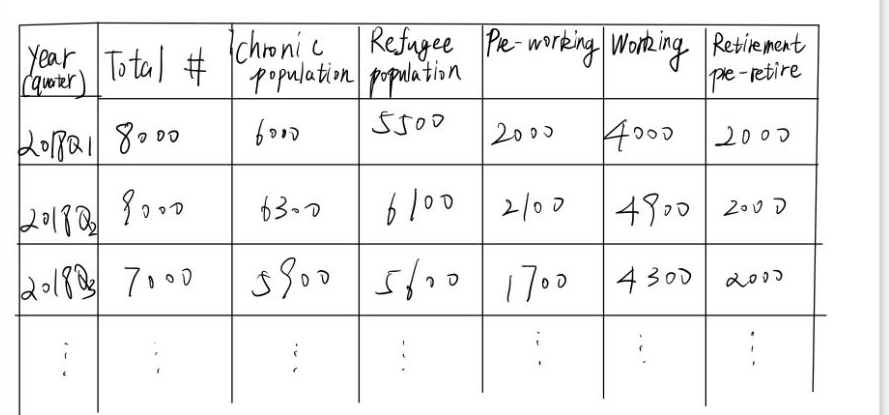 Year
(quater)
Total #
Chronic
population
Refugee
population
Pre-working
Working
Retirement
pre-retire
2018Q1 8000 6000 5500 2000 4000 2000
2018Q2 9000 6300 6100 2100 4900 2000
2018Q3 7000 5900 5600 1700 4300 2000